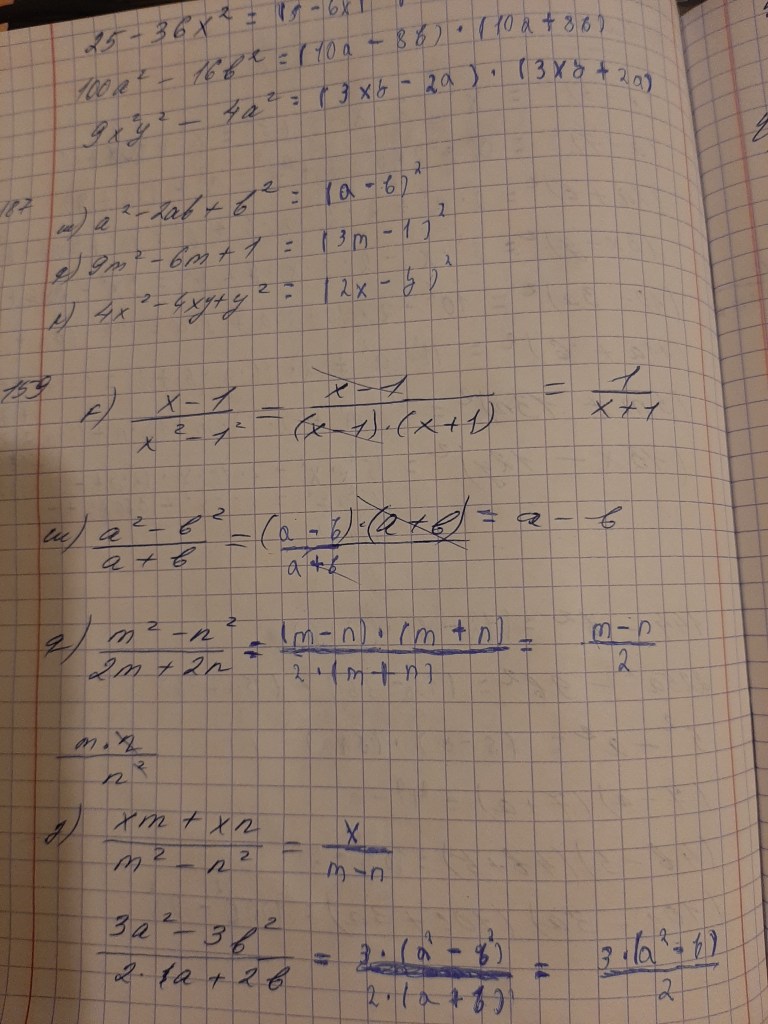 25 - 36x² = (5 - 6x)
100a² - 16b² = (10a - 8b) · (10a + 8b)
9x²y² - 4a² = (3xy - 2a) · (3xy + 2a)
187
m) a² - 2ab + b² = (a - b)²
9m² - 6m + 1 = (3m - 1)²
4x² - 4xy + y² = (2x - y)²
159
(x - 1)/(x² - 1²) = (x - 1)/((x - 1) · (x + 1)) = 1/(x + 1)
m) (a² - b²)/(a + b) = ((a - b) · (a + b))/(a + b) = a - b
q) (m² - n²)/(2m + 2n) = ((m - n) · (m + n))/(2 · (m + n)) = (m - n)/2
(m · n)/n²
g) (xm + xn)/(m² - n²) = x/(m - n)
(3a² - 3b²)/(2 · a + 2b) = (3 · (a² - b²))/(2 · (a + b)) = (3 · (a² - b))/2